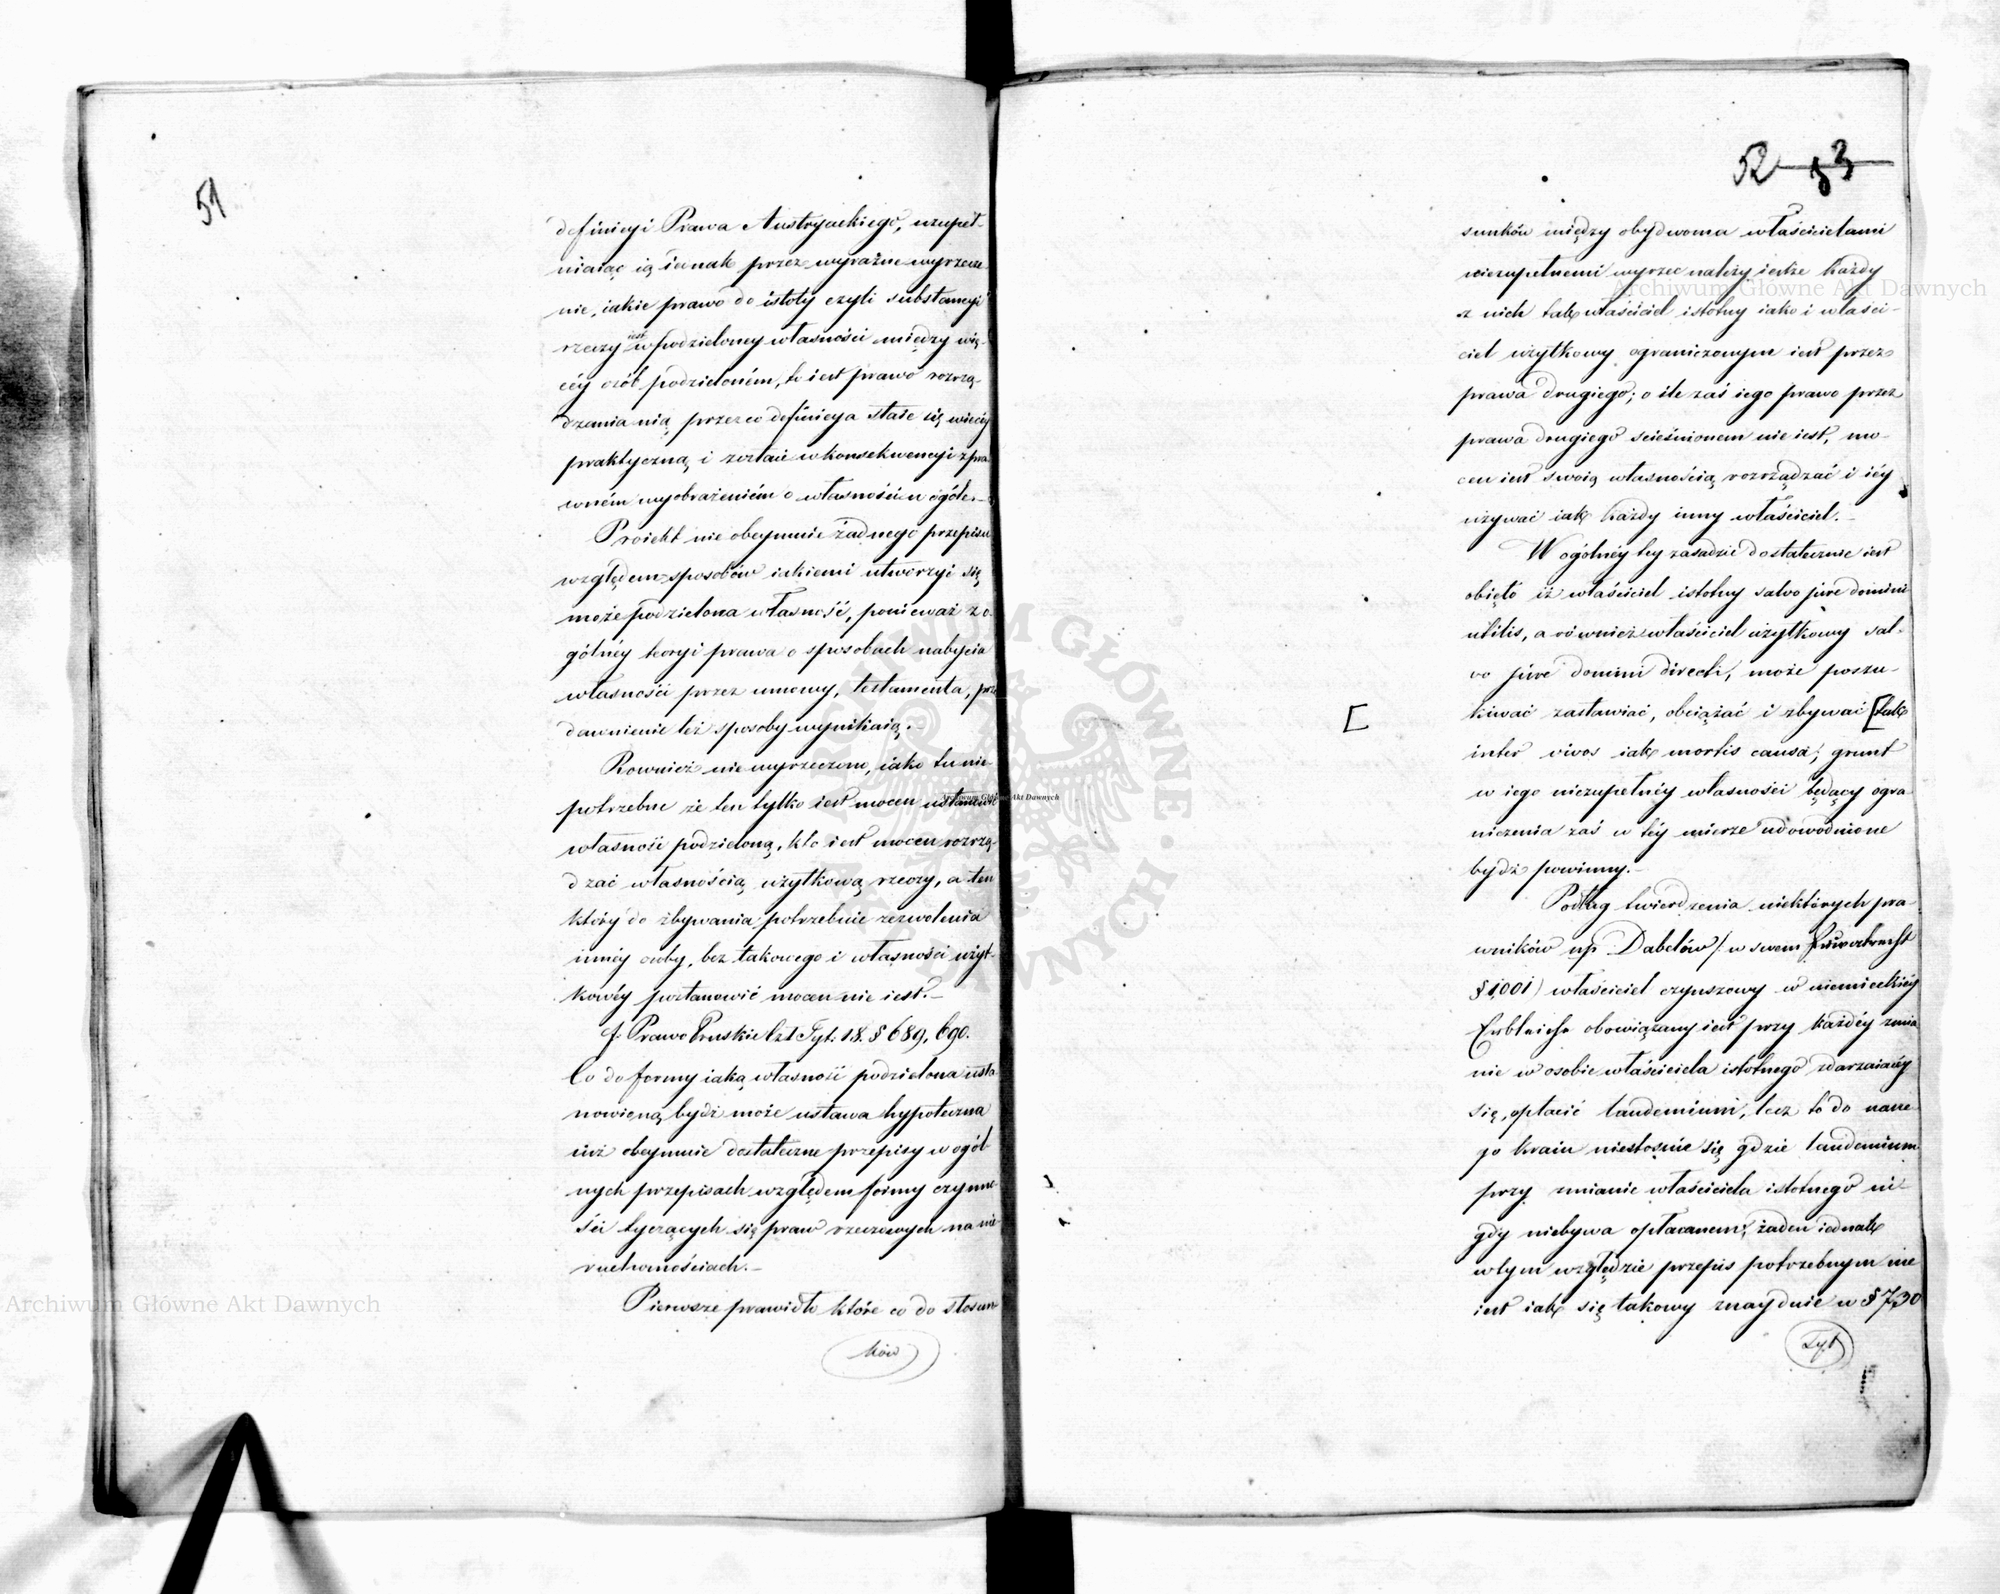 51
definicyi Prawa Austryackiego, uzupeł-
niaiąc ią iednak przez wyraźne wyrzecze-
nie, iakie prawo do istoty czyli substancyi
rzeczy iest w podzieloney własności między wię-
céy osób podzieloném, to iest prawo rozrzą-
dzania nią przez co definicya staie się więcéy
praktyczną i zostaie w konsekwencyi z pra-
wném wyobrażeniém o własności w ogóle.-
Proiekt nie obeymuie żadnego przepisu
względem sposobów iakiemi utworzyć się
może podzielona własność, ponieważ z o-
gólnéy teoryi prawa o sposobach nabycia
własności przez umowy, testamenta, prze
dawnienie też sposoby wynikaią.-
Rownież nie wyrzeczono, iako tu nie-
potrzebne że ten tylko iest mocen ustanowić
własność podzieloną, kto iest mocen rozrzą-
dzać własnością użytkową rzeczy, a ten
który do zbywania potrzebuie zezwolenia
innéy osoby, bez takowego i własności użyt-
kowéy postanowić mocen nie iest.-
f. Prawo Pruskie Czt Tyt. 18. § 689, 690.
Co do formy iaką własność podzielona usta
nowioną bydź może ustawa hypoteczna
iuż obeymuie dostateczne przepisy w ogól-
nych przepisach względem formy czynno-
ści tyczących się praw rzeczowych na nie-
ruchomościach.-
Pierwsze prawidło które co do stosun
ków
52 53
sunków między obydwoma właścicielami
niezupełnemi wyrzec należy iest że każdy
z nich tak właściciel istotny iako i właści-
ciel użytkowy ograniczonym iest przez
prawa drugiego; o ile zaś iego prawo przez
prawa drugiego scieśnionem nie iest, mo-
cen iest swoią własnością rozrządzać i iéy
używać iak każdy inny właściciel.-
W ogólnéy tey zasadzie dostatecznie iest
obięto iż właściciel istotny salvo jure domini
utilis, a również właściciel użytkowy sal-
vo jure domini directi, może poszu-
[
kiwać zastawiać, obciążać i zbywać [tak
inter vivos iak mortis causa, grunt
w iego niezupełnéy własności będący ogra
niczenia zaś w téy mierze udowodnione
bydź powinny.-
Podług twierdzenia niektórych pra-
wników np. Dabelów /: w swem
§ 1001) właściciel czynszowy w niemieckiéy
Erbleihe obowiązany iest przy każdéy zmia
nie w osobie właściciela istotnego zdarzaiącéy
się, opłacić laudemium, lecz to do nasze
go kraiu niestosuie się gdzie laudemium
przy zmianie właściciela istotnego ni-
gdy niebywa opłacanem; żaden iednak
w tym względzie przepis potrzebnym nie
iest iak się takowy znayduie w § 730
Tyt
Archiwum Główne Akt Dawnych
Archiwum Główne Akt Dawnych
Archiwum Główne Akt Dawnych
ARCHIWUM GŁÓWNE AKT DAWNYCH